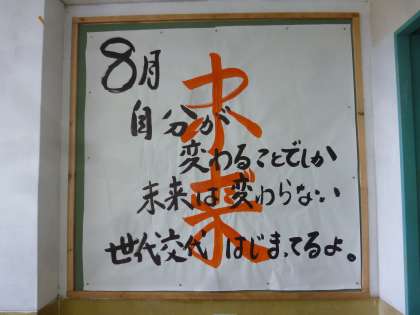 8月
未来
自分が
変わることでしか
未来は変わらない
世代交代はじまってるよ。